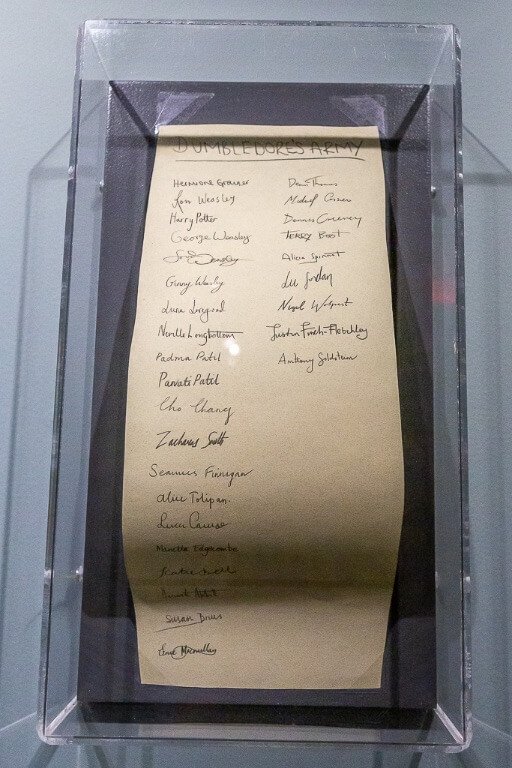 DUMBLEDORE'S ARMY
HERMIONE GRANGER
Ron Weasley
Harry Potter
George Weasley
Ginny Weasley
Luna Lovegood
Neville Longbottom
Padma Patil
Parvati Patil
Cho Chang
Zacharias Smith
Seamus Finnigan
Alice Tolipan
Marietta Edgecombe
Susan Bones
Dean Thomas
Michael Corner
Dennis Creevey
TERRY BOOT
Alicia Spinnet
Lee Jordan
Nigel Wolpert
Justin Finch-Fletchley
Anthony Goldstein